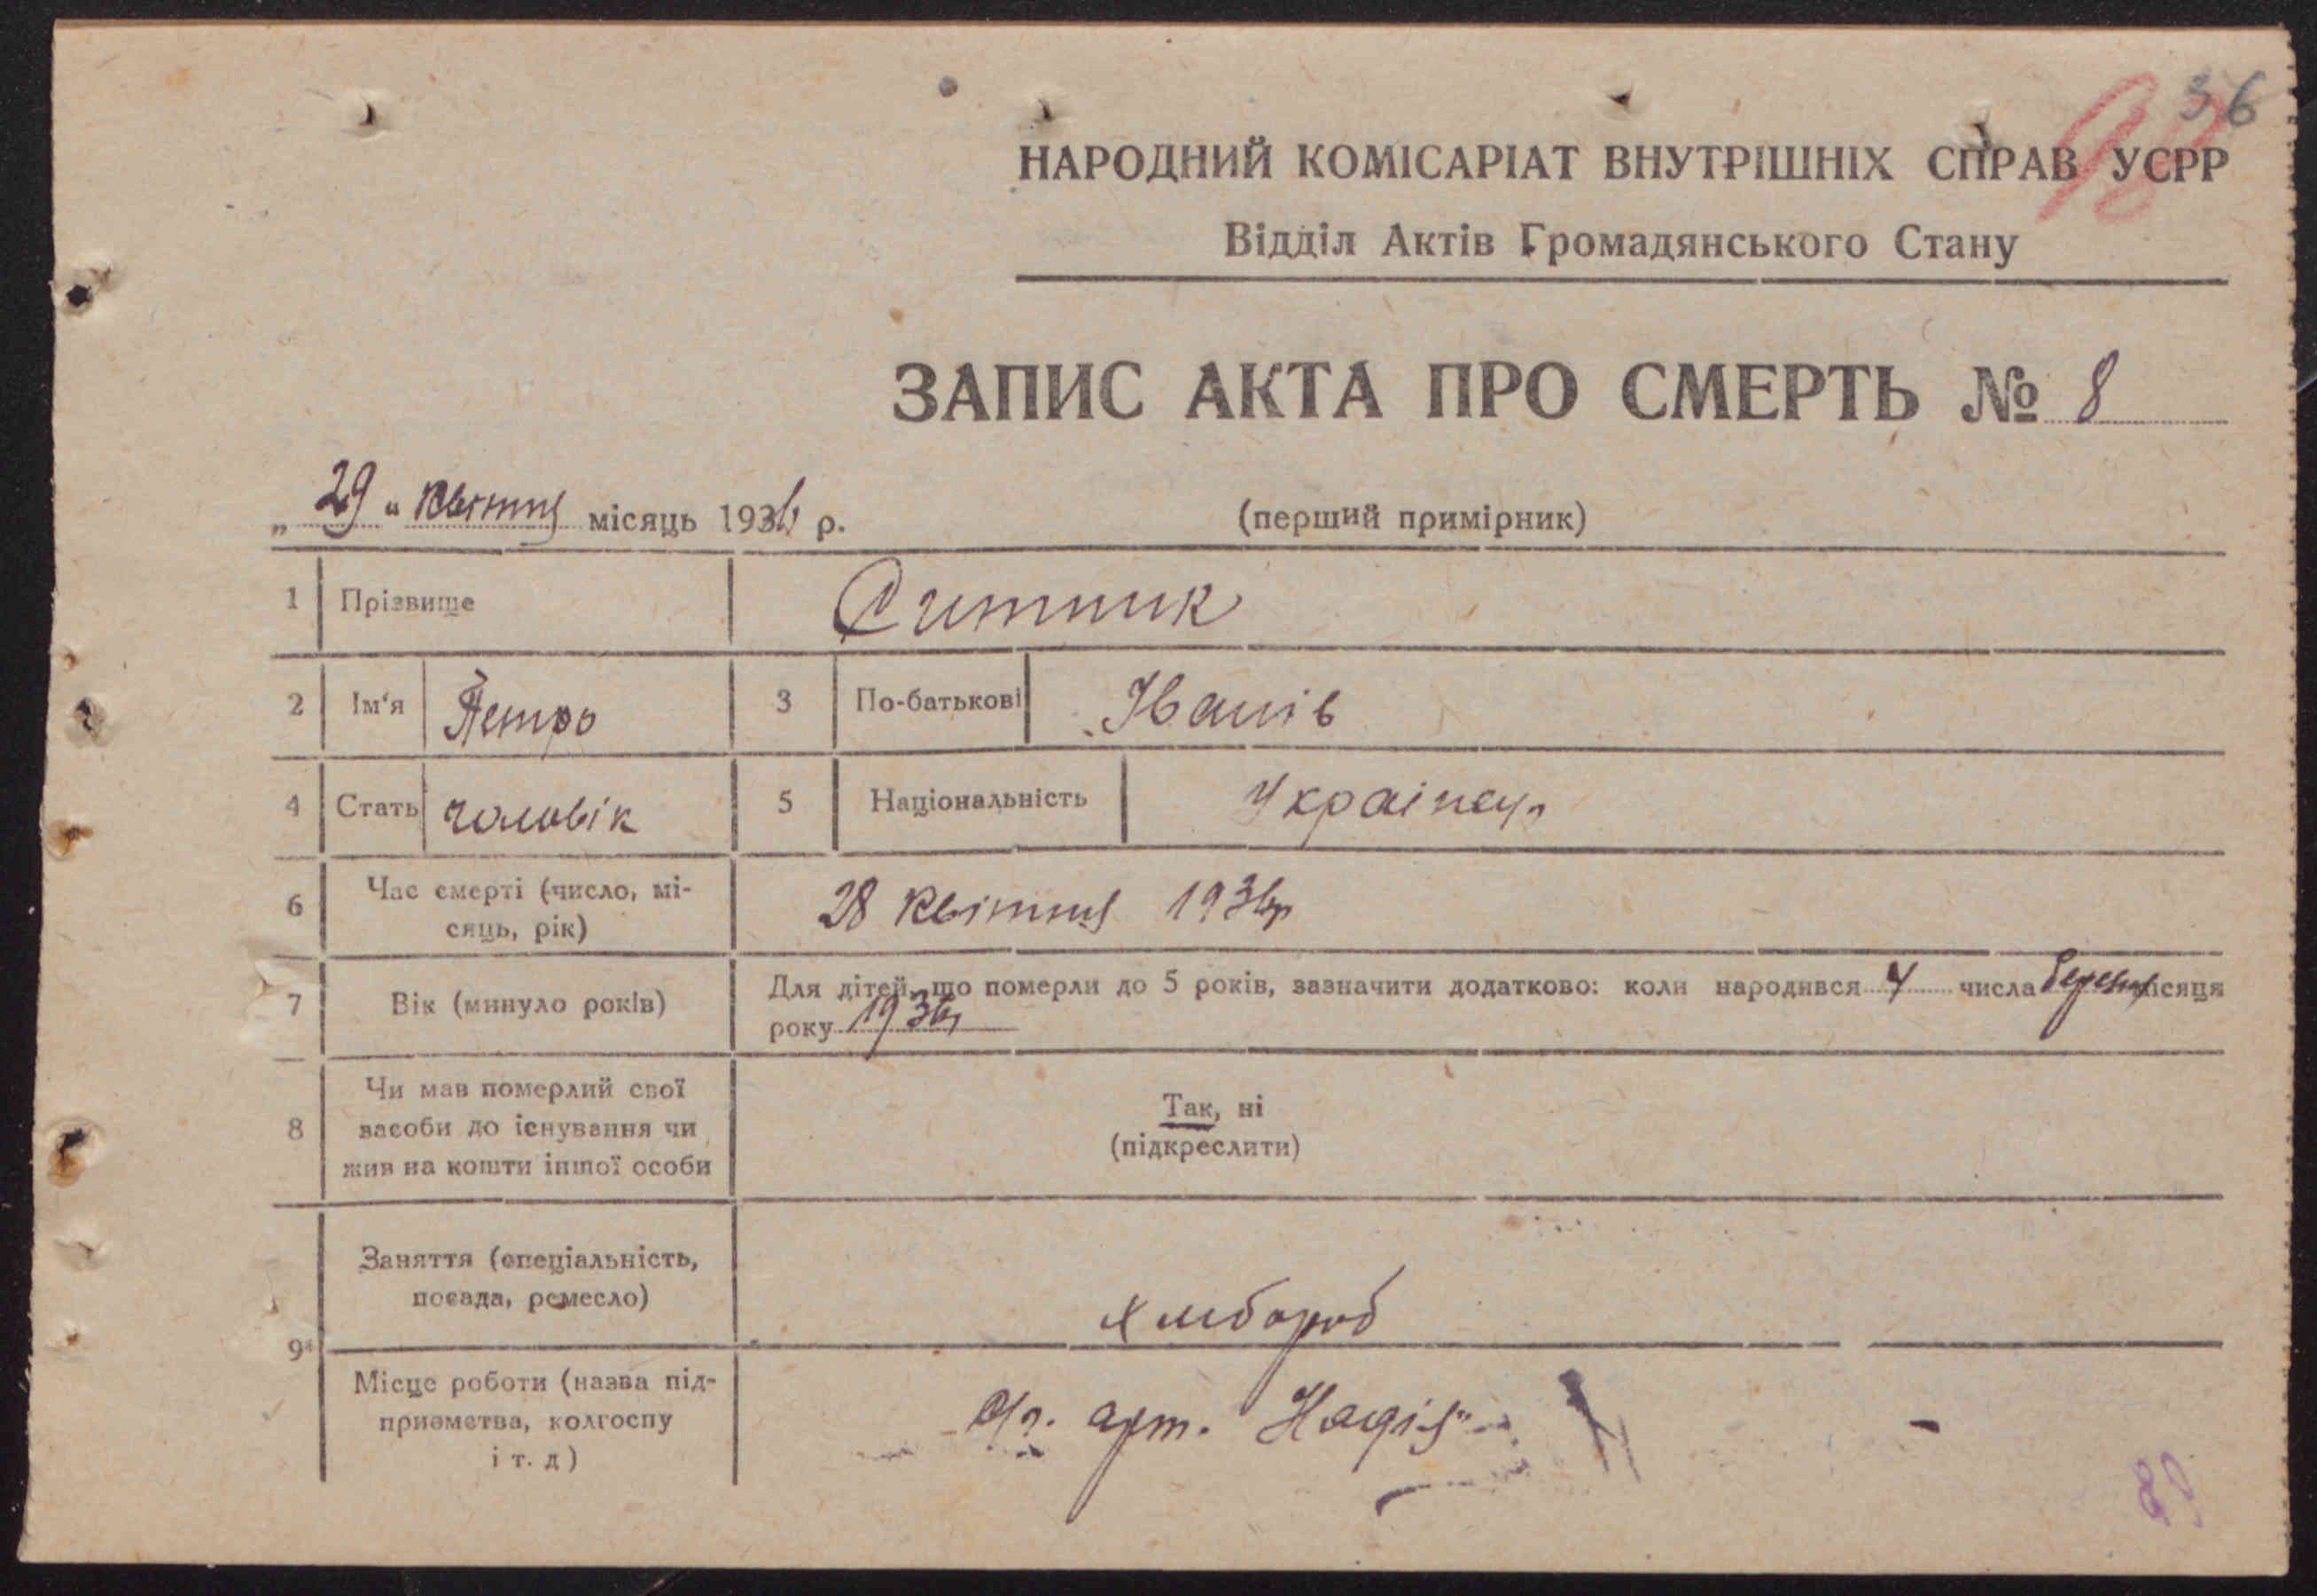 36
НАРОДНИЙ КОМІСАРІАТ ВНУТРІШНІХ СПРАВ УСРР
Відділ Актів Громадянського Стану
ЗАПИС АКТА ПРО СМЕРТЬ № 8
„ 29 “ квітня місяць 193 р.
(перший примірник)
1 Прізвище Ситник
2 Ім‘я Петро 3 По-батькові Іванів
4 Стать чоловік 5 Національність Украінець
6 Час смерті (число, мі-
сяць, рік) 28 квітня 193
7 Вік (минуло років) Для дітей, що померли до 5 років, зазначити додатково: коли народився 4 числа березня місяця
року 193
8 Чи мав померлий свої
засоби до існування чи
жив на кошти іншої особи
Так, ні
(підкреслити)
9 Заняття (спеціальність,
посада, ремесло) хлібороб
Місце роботи (назва під-
приємства, колгоспу
і т. д) с/г. арт. Надія"